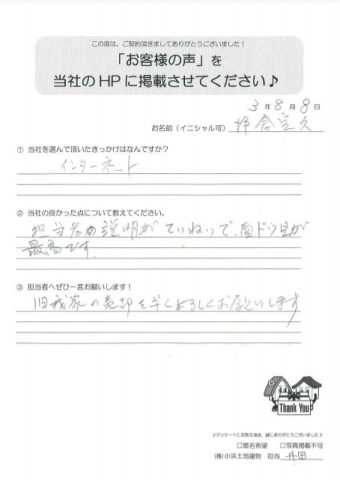 この度は、ご契約頂きましてありがとうございました！
「お客様の声」を
当社のHPに掲載させてください♪
3年8月8日
お名前（イニシャル可）
① 当社を選んで頂いたきっかけはなんですか？
インターネット
② 当社の良かった点について教えてください。
担当者の説明がていねいで、面ドウ見が
最高です。
③ 担当者へぜひ一言お願いします！
旧我家の売却を早くよろしくお願いします
Thank You
♪アンケートにお答え頂き、誠にありがとうございました♪
□匿名希望 □写真掲載不可
(株)小浜土地建物 担当 丹田